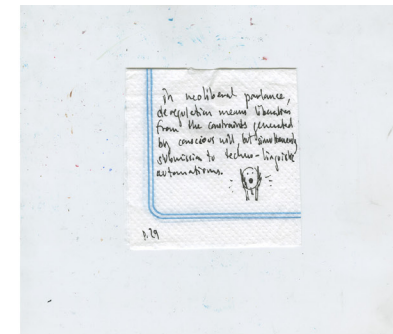 In neoliberal parlance,
deregulation means liberation
from the constraints generated
by conscious will, but simultaneously
submission to techno-linguistic
automatisms.
p.29